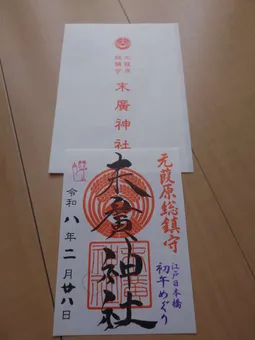 元葭原
総鎮守
末廣神社
元葭原総鎮守
江戸日本橋
初午めぐり
末廣神社
令和八年二月廿八日